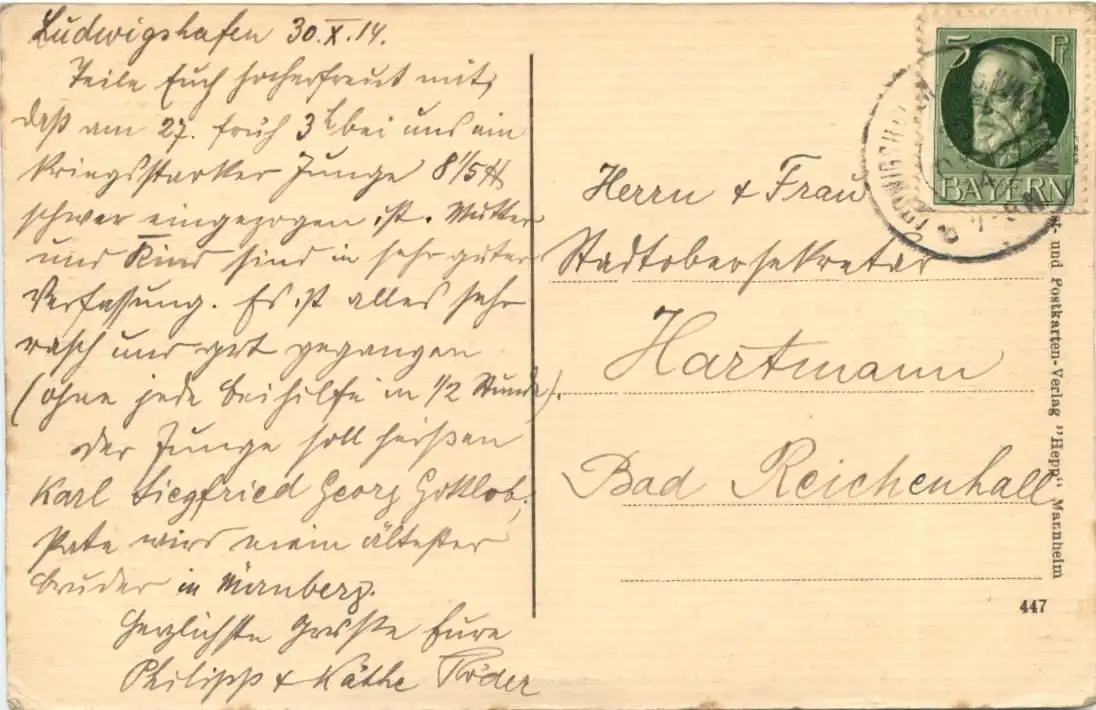 Ludwigshafen 30.X.14.
Teile Euch hocherfreut mit,
daß am 27. früh 3h bei uns ein
kriegsstarker Junge 8 1/5 ℔
schwer eingezogen ist. Mutter
und Kind sind in sehr guter
Verfassung. Es ist alles sehr
rasch und gut gegangen
(ohne jede Beihilfe in 1/2 Stunde).
Der Junge soll heißen
Karl Siegfried Georg Gottlob;
Pate wird mein ältester
Bruder in Nürnberg.
Herzlichste Grüße Eure
Philipp & Käthe Röder
5 Pf
BAYERN
Herrn & Frau
Stadtobersekretär
Hartmann
Bad Reichenhall
und Postkarten-Verlag "Hepp" Mannheim
447